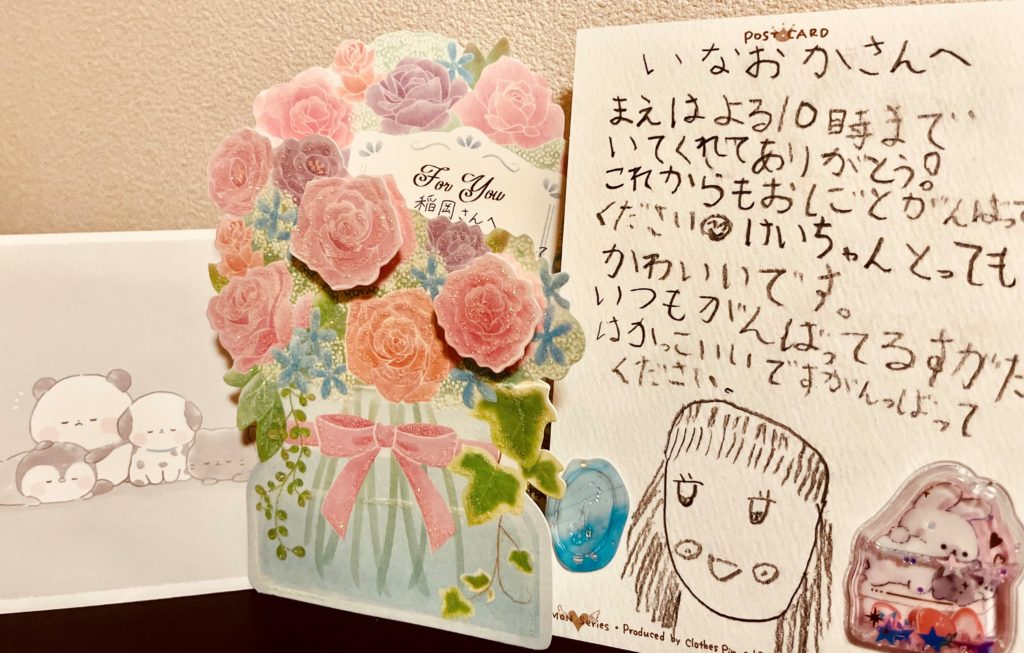 For You
稲岡さんへ
POST CARD
いなおかさんへ
まえはよる10時まで
いてくれてありがとう!
これからもおしごとがんばって
ください けいちゃんとっても
かわいいです。
いつもがんばってるすがた
はかっこいいですがんっばって
ください。
Series • Produced by Clothes Pin